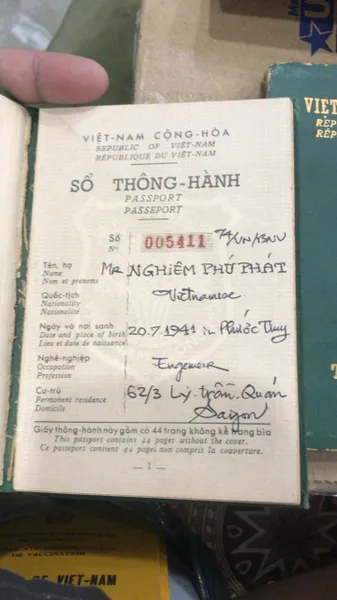 VIỆT-NAM CỘNG-HÒA
REPUBLIC OF VIỆT-NAM
RÉPUBLIQUE DU VIỆT-NAM
SỔ THÔNG-HÀNH
PASSPORT
PASSEPORT
Số
Nº 005411 74/VN/BNV
Tên, họ
Name
Nom et prénoms
MR NGHIÊM PHÚ PHÁT
Quốc-tịch
Nationality
Nationalité
Vietnamese
Ngày và nơi sanh
Date and place of birth
Lieu et date de naissance
20.7.1941 in Phước Tuy
Nghề-nghiệp
Occupation
Profession
Engeneer
Cư-trú
Permanent residence
Domicile
62/3 Lý. trần. Quán
Saigon
Giấy thông-hành này gồm có 44 trang không kể trang bìa
This passport contains 44 pages without the cover.
Ce passeport contient 44 pages non compris la couverture.
— 1 —
VIỆT
RÉP
TIONAUX
DE VACCINATION
OF VIET-NAM